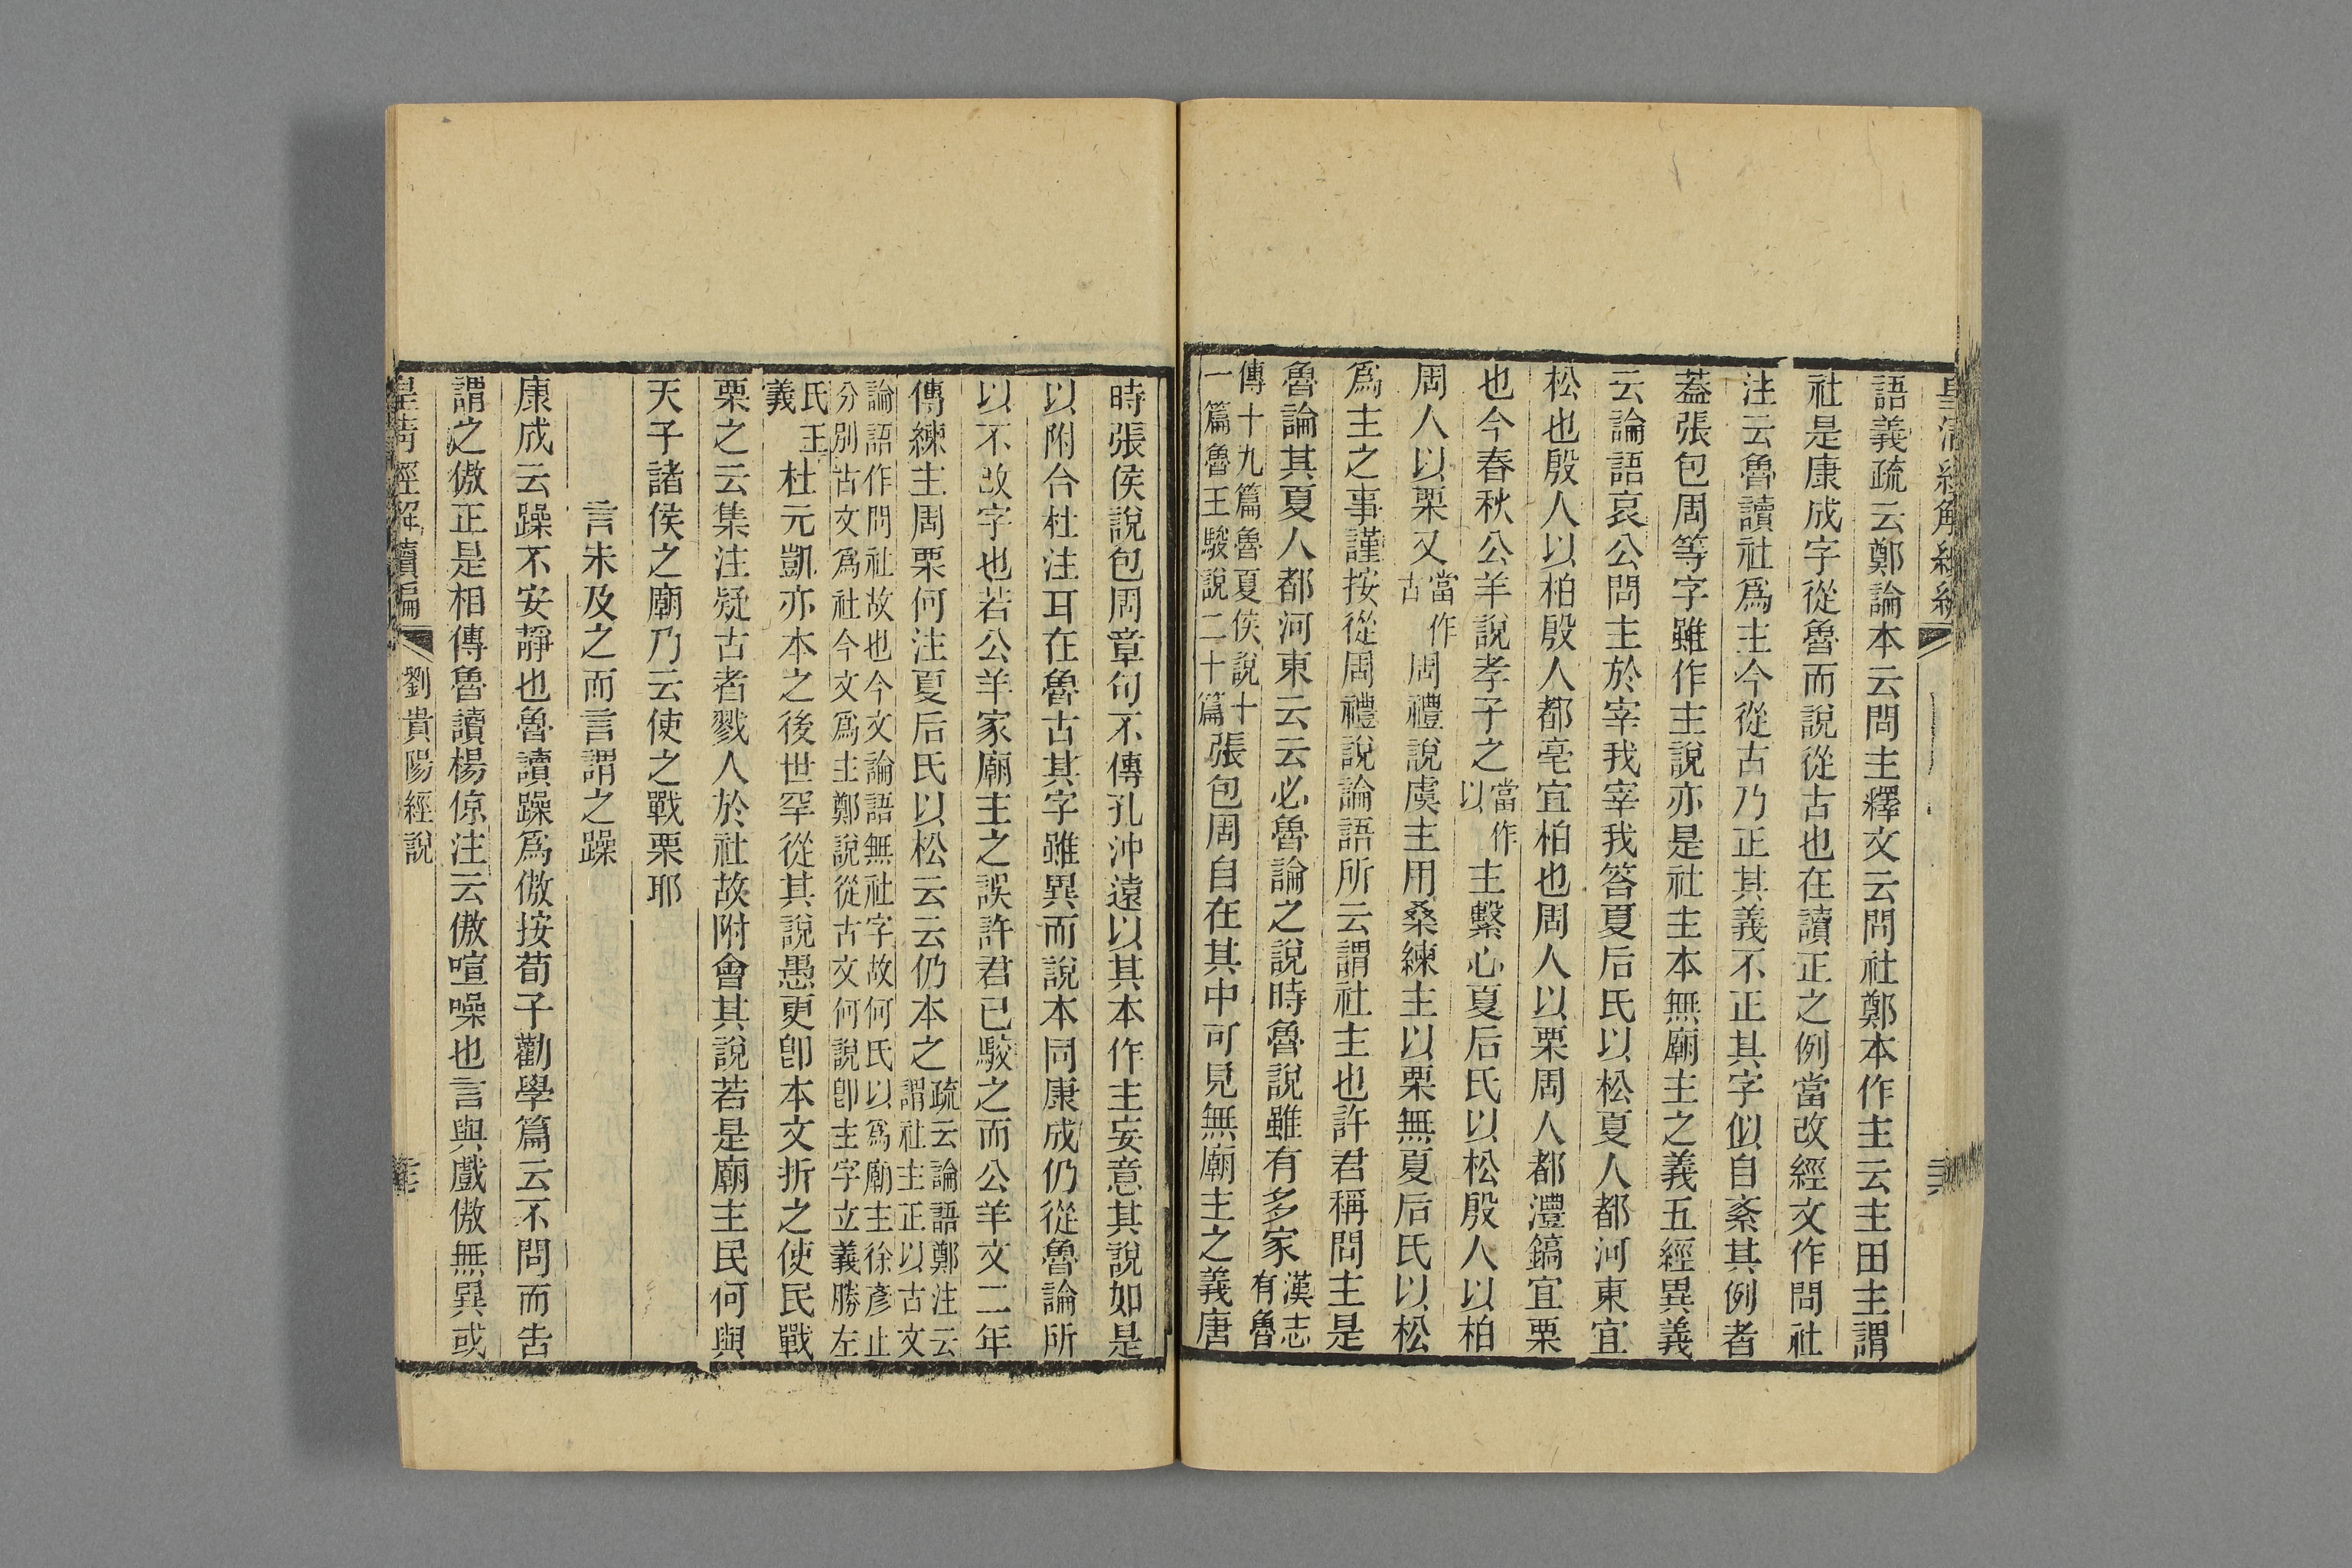 語義疏云鄭論本云問主釋文云問社鄭本作主云主田主謂
社是康成字從魯而說從古也在讀正之例當改經文作問社
注云魯讀社爲主今從古乃正其義不正其字似自紊其例者
蓋張包周等字雖作主說亦是社主本無廟主之義五經異義
云論語哀公問主於宰我宰我答夏后氏以松夏人都河東宜
松也殷人以柏殷人都亳宜柏也周人以栗周人都灃鎬宜栗
也今春秋公羊說孝子之當作以主繫心夏后氏以松殷人以柏
周人以栗又當作古周禮說虞主用桑練主以栗無夏后氏以松
爲主之事謹按從周禮說論語所云謂社主也許君稱問主是
魯論其夏人都河東云云必魯論之說時魯說雖有多家漢志有魯
傳十九篇魯夏侯說十一篇魯王駿說二十篇張包周自在其中可見無廟主之義唐
時張侯說包周章句不傳孔沖遠以其本作主妄意其說如是
以附合杜注耳在魯古其字雖異而說本同康成仍從魯論所
以不改字也若公羊家廟主之誤許君已駮之而公羊文二年
傳練主周栗何注夏后氏以松云云仍本之疏云論語鄭注云謂社主正以古文
論語作問社故也今文論語無社字故何氏以爲廟主徐彥止分別古文爲社今文爲主鄭說從古文何說卽主字立義勝左
氏王義杜元凱亦本之後世罕從其說愚更卽本文折之使民戰
栗之云集注疑古者戮人於社故附會其說若是廟主民何與
天子諸侯之廟乃云使之戰栗耶
言未及之而言謂之躁
康成云躁不安靜也魯讀躁爲傲按荀子勸學篇云不問而告
謂之傲正是相傳魯讀楊倞注云傲喧噪也言與戲傲無異或
皇清經解續編 劉貴陽經說